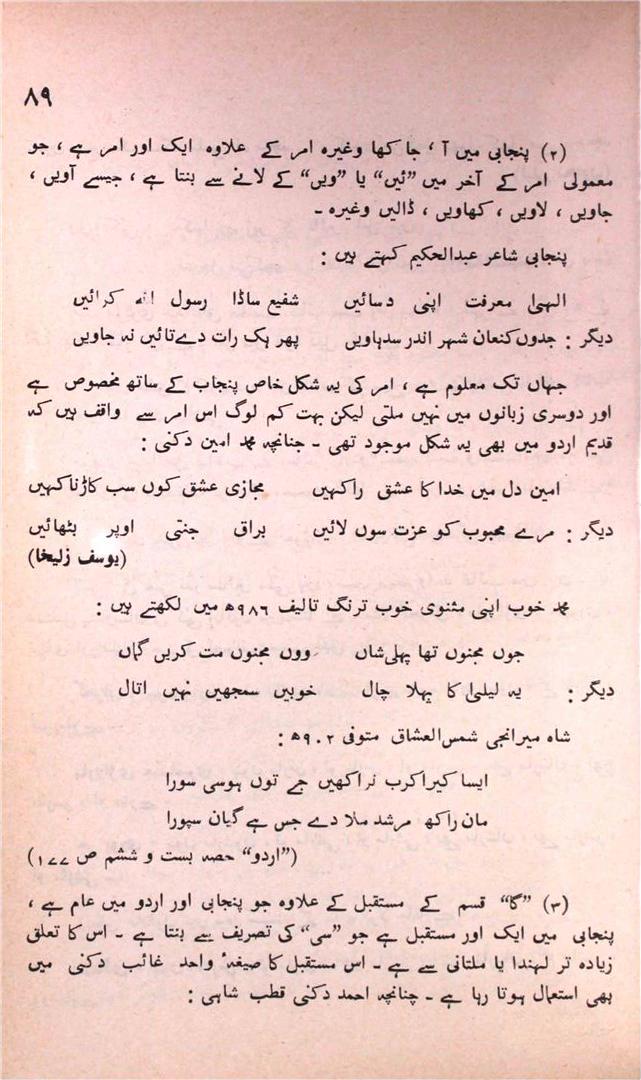 ۸۹
(۲) پنجابی میں آ ، جا کھا وغیرہ امر کے علاوہ ایک اور امر ہے ، جو
معمولی امر کے آخر میں ”ئیں“ یا ”ویں“ کے لانے سے بنتا ہے ، جیسے آویں ،
جاویں ، لاویں ، کھاویں ، ڈالیں وغیرہ ۔
پنجابی شاعر عبدالحکیم کہتے ہیں :
الہیٰ معرفت اپنی دسائیں شفیع ساڈا رسول اللہ کرائیں
دیگر : جدوں کنعان شہر اندر سدہاویں پھر ہک رات دے تائیں نہ جاویں
جہاں تک معلوم ہے ، امر کی یہ شکل خاص پنجاب کے ساتھ مخصوص ہے
اور دوسری زبانوں میں نہیں ملتی لیکن بہت کم لوگ اس امر سے واقف ہیں کہ
قدیم اردو میں بھی یہ شکل موجود تھی ۔ چنانچہ محمد امین دکنی :
امین دل میں خدا کا عشق راکہیں مجازی عشق کوں سب کاڑنا کہیں
دیگر : مرے محبوب کو عزت سوں لائیں براق جنتی اوپر بٹھائیں
(یوسف زلیخا)
محمد خوب اپنی مثنوی خوب ترنگ تالیف ۹۸۶ھ میں لکھتے ہیں :
جوں مجنوں تھا پہلی شاں ووں مجنوں مت کریں گماں
دیگر : یہ لیلیٰ کا پہلا چال خوبیں سمجھیں نہیں اتال
شاہ میرانجی شمس العشاق متوفی ۹۰۲ھ :
ایسا کیرا کرب نراکھیں جے توں ہوسی سورا
مان راکھ مرشد ملا دے جس ہے گیان سپورا
(”اردو“ حصہ بست و ششم ص ۱۷۷)
(۳) ”گا“ قسم کے مستقبل کے علاوہ جو پنجابی اور اردو میں عام ہے ،
پنجابی میں ایک اور مستقبل ہے جو ”سی“ کی تصریف سے بنتا ہے ۔ اس کا تعلق
زیادہ تر لہندا یا ملتانی سے ہے ۔ اس مستقبل کا صیغۂ واحد غائب دکنی میں
بھی استعمال ہوتا رہا ہے ۔ چنانچہ احمد دکنی قطب شاہی :